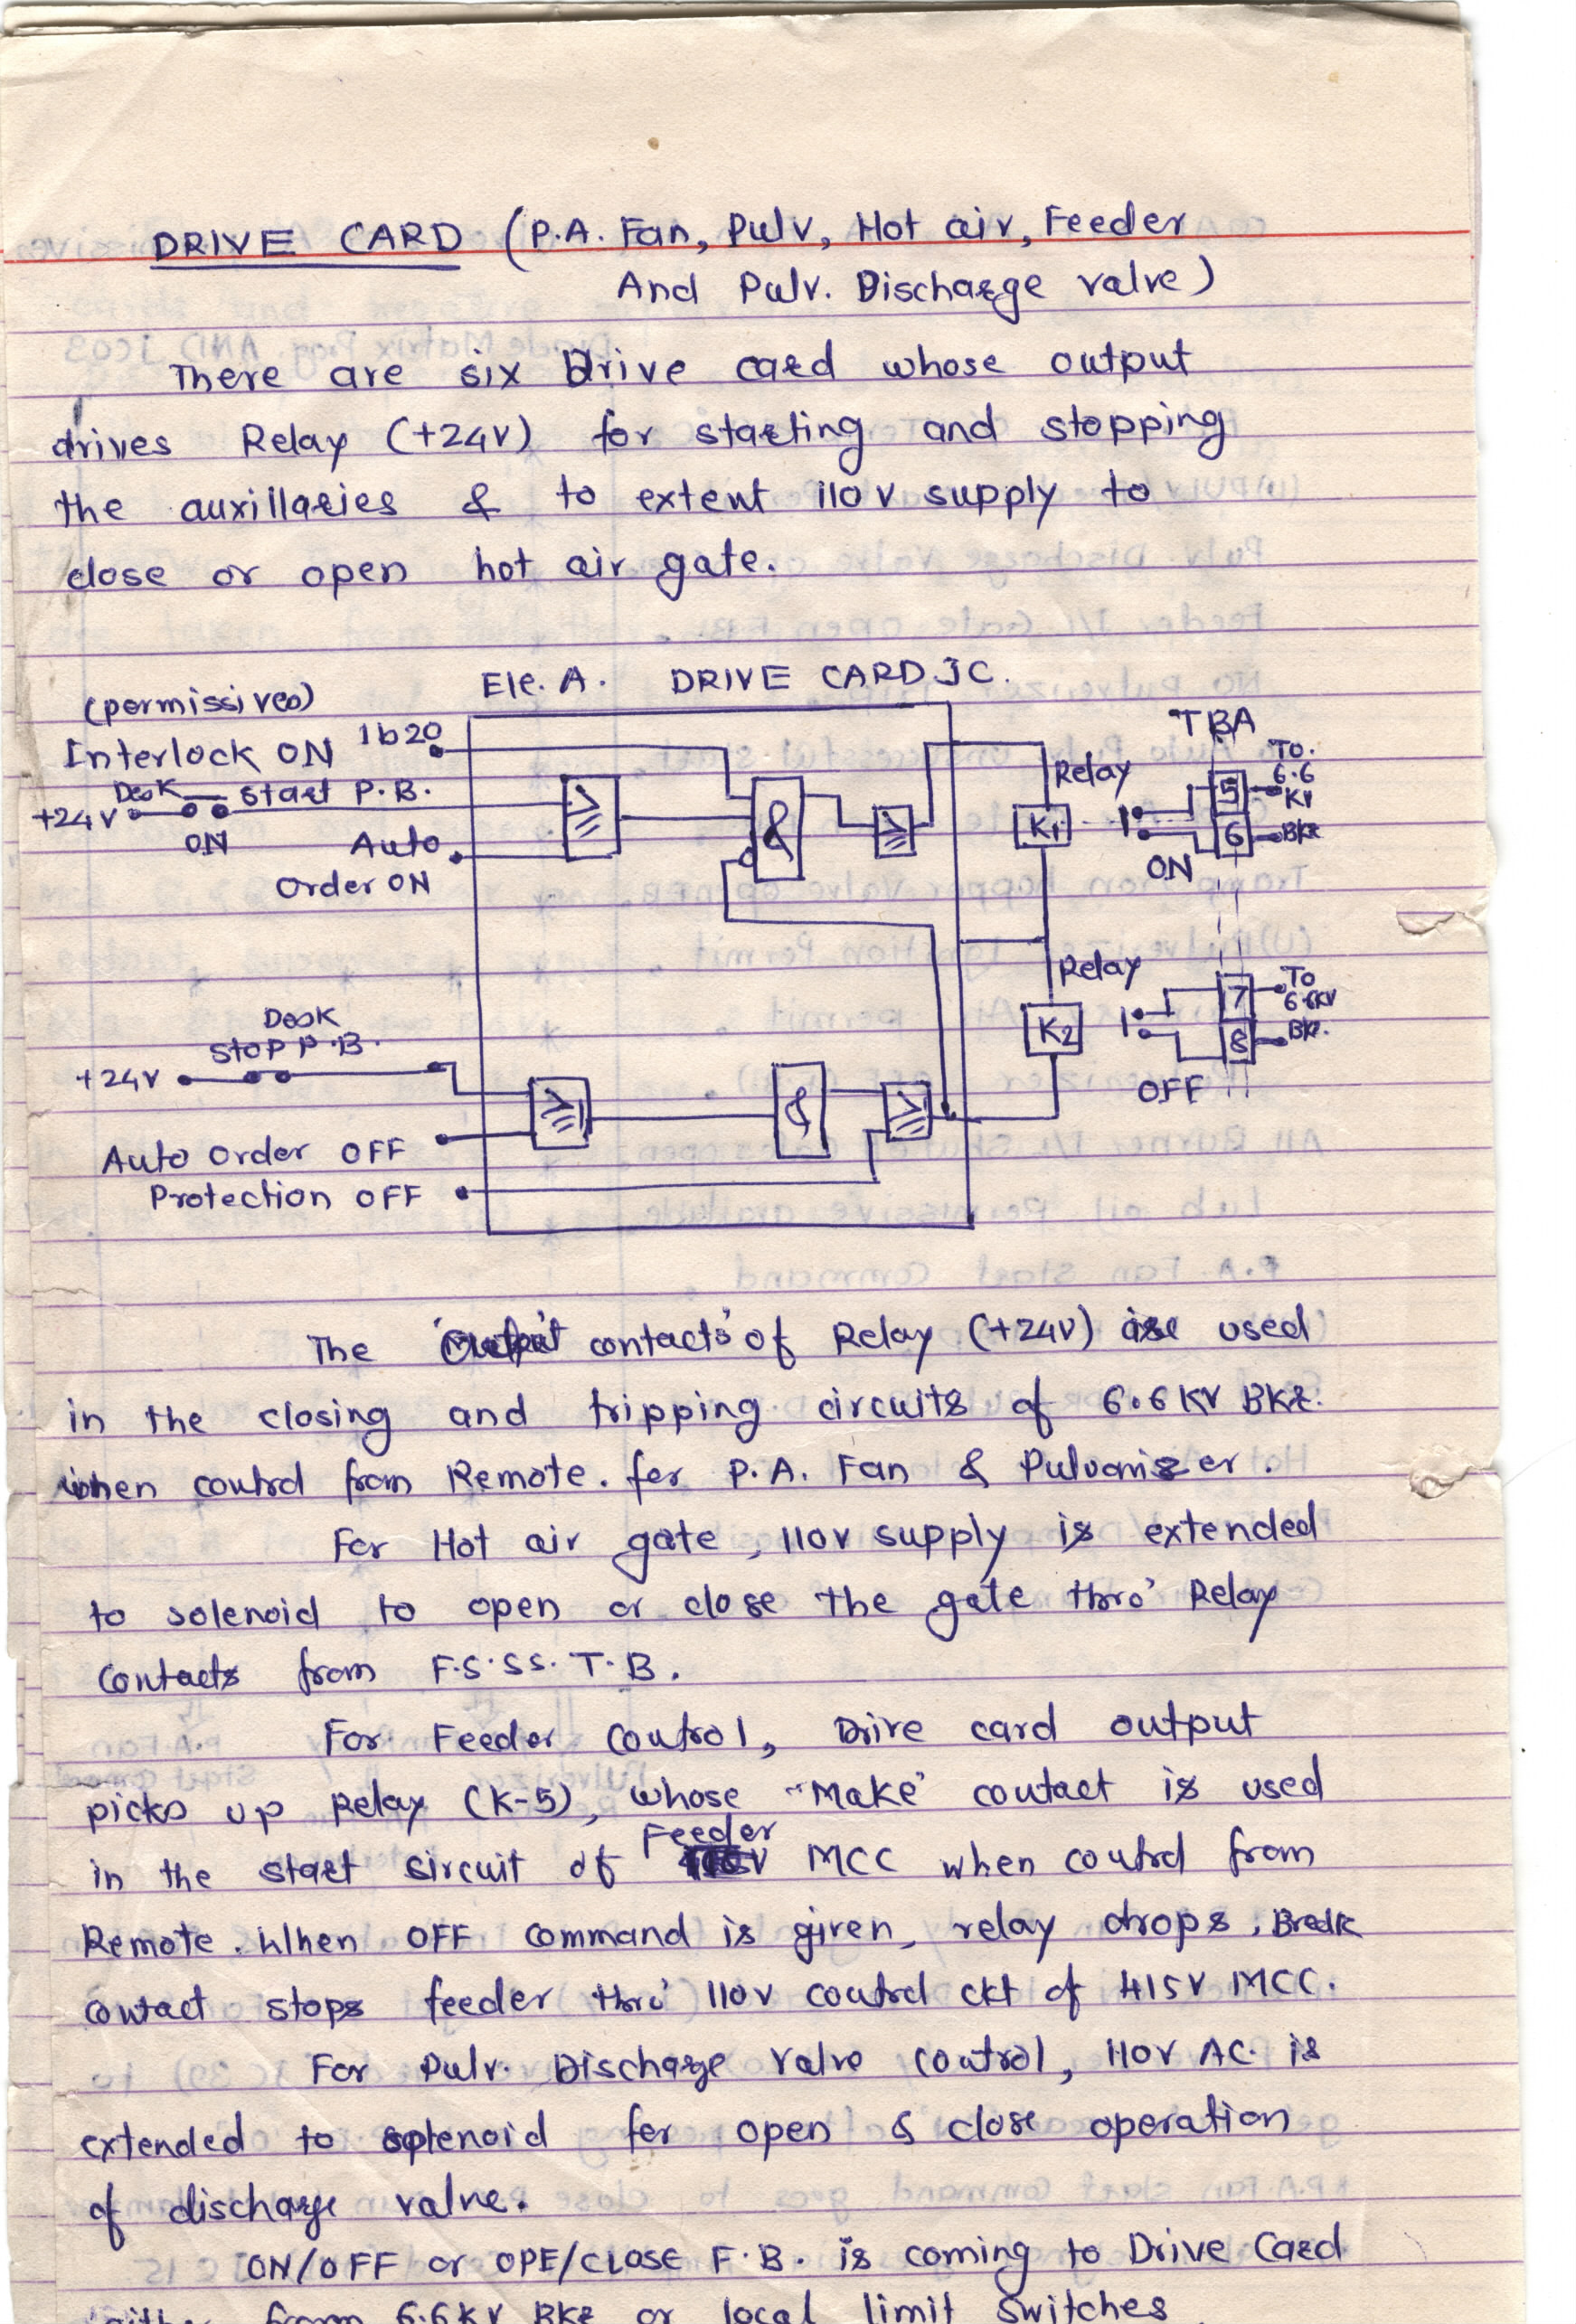 DRIVE CARD (P.A. Fan, Pulv, Hot air, Feeder
And Pulv. Discharge valve)
There are six Drive card whose output
drives Relay (+24V) for starting and stopping
the auxillaries & to extent 110 V supply to
close or open hot air gate.
Ele. A. DRIVE CARD JC.
(permissives)
Interlock ON 1b20
Desk Start P.B.
+24V
ON
Auto
Order ON
≥
&
≥
Relay
K1
ON
TBA
5
6
To.
6.6
KV
BKR
Relay
K2
OFF
7
8
To
6.6KV
BKR.
Desk
STOP P.B.
+24V
≥
&
≥
Auto Order OFF
Protection OFF
The 'Output contacts' of Relay (+24V) are used
in the closing and tripping circuits of 6.6 KV BKR.
when control from Remote. for P.A. Fan & Pulvoniser.
For Hot air gate, 110V supply is extended
to solenoid to open or close the gate thro' Relay
Contacts from F.S.SS. T.B.
For Feeder Control, Drive card output
picks up Relay (K-5), whose "Make' contact is used
in the start sircuit of Feeder MCC when control from
Remote. When OFF command is given, relay drops, Break
contact stops feeder thro' 110V control ckt of 415V MCC.
For Pulv. Discharge Valve Control, 110V AC. is
extended to solenoid for open & close operation
of discharge valve.
ON/OFF or OPE/CLOSE F.B. is coming to Drive Card
from 6.6KV BKR or local limit switches